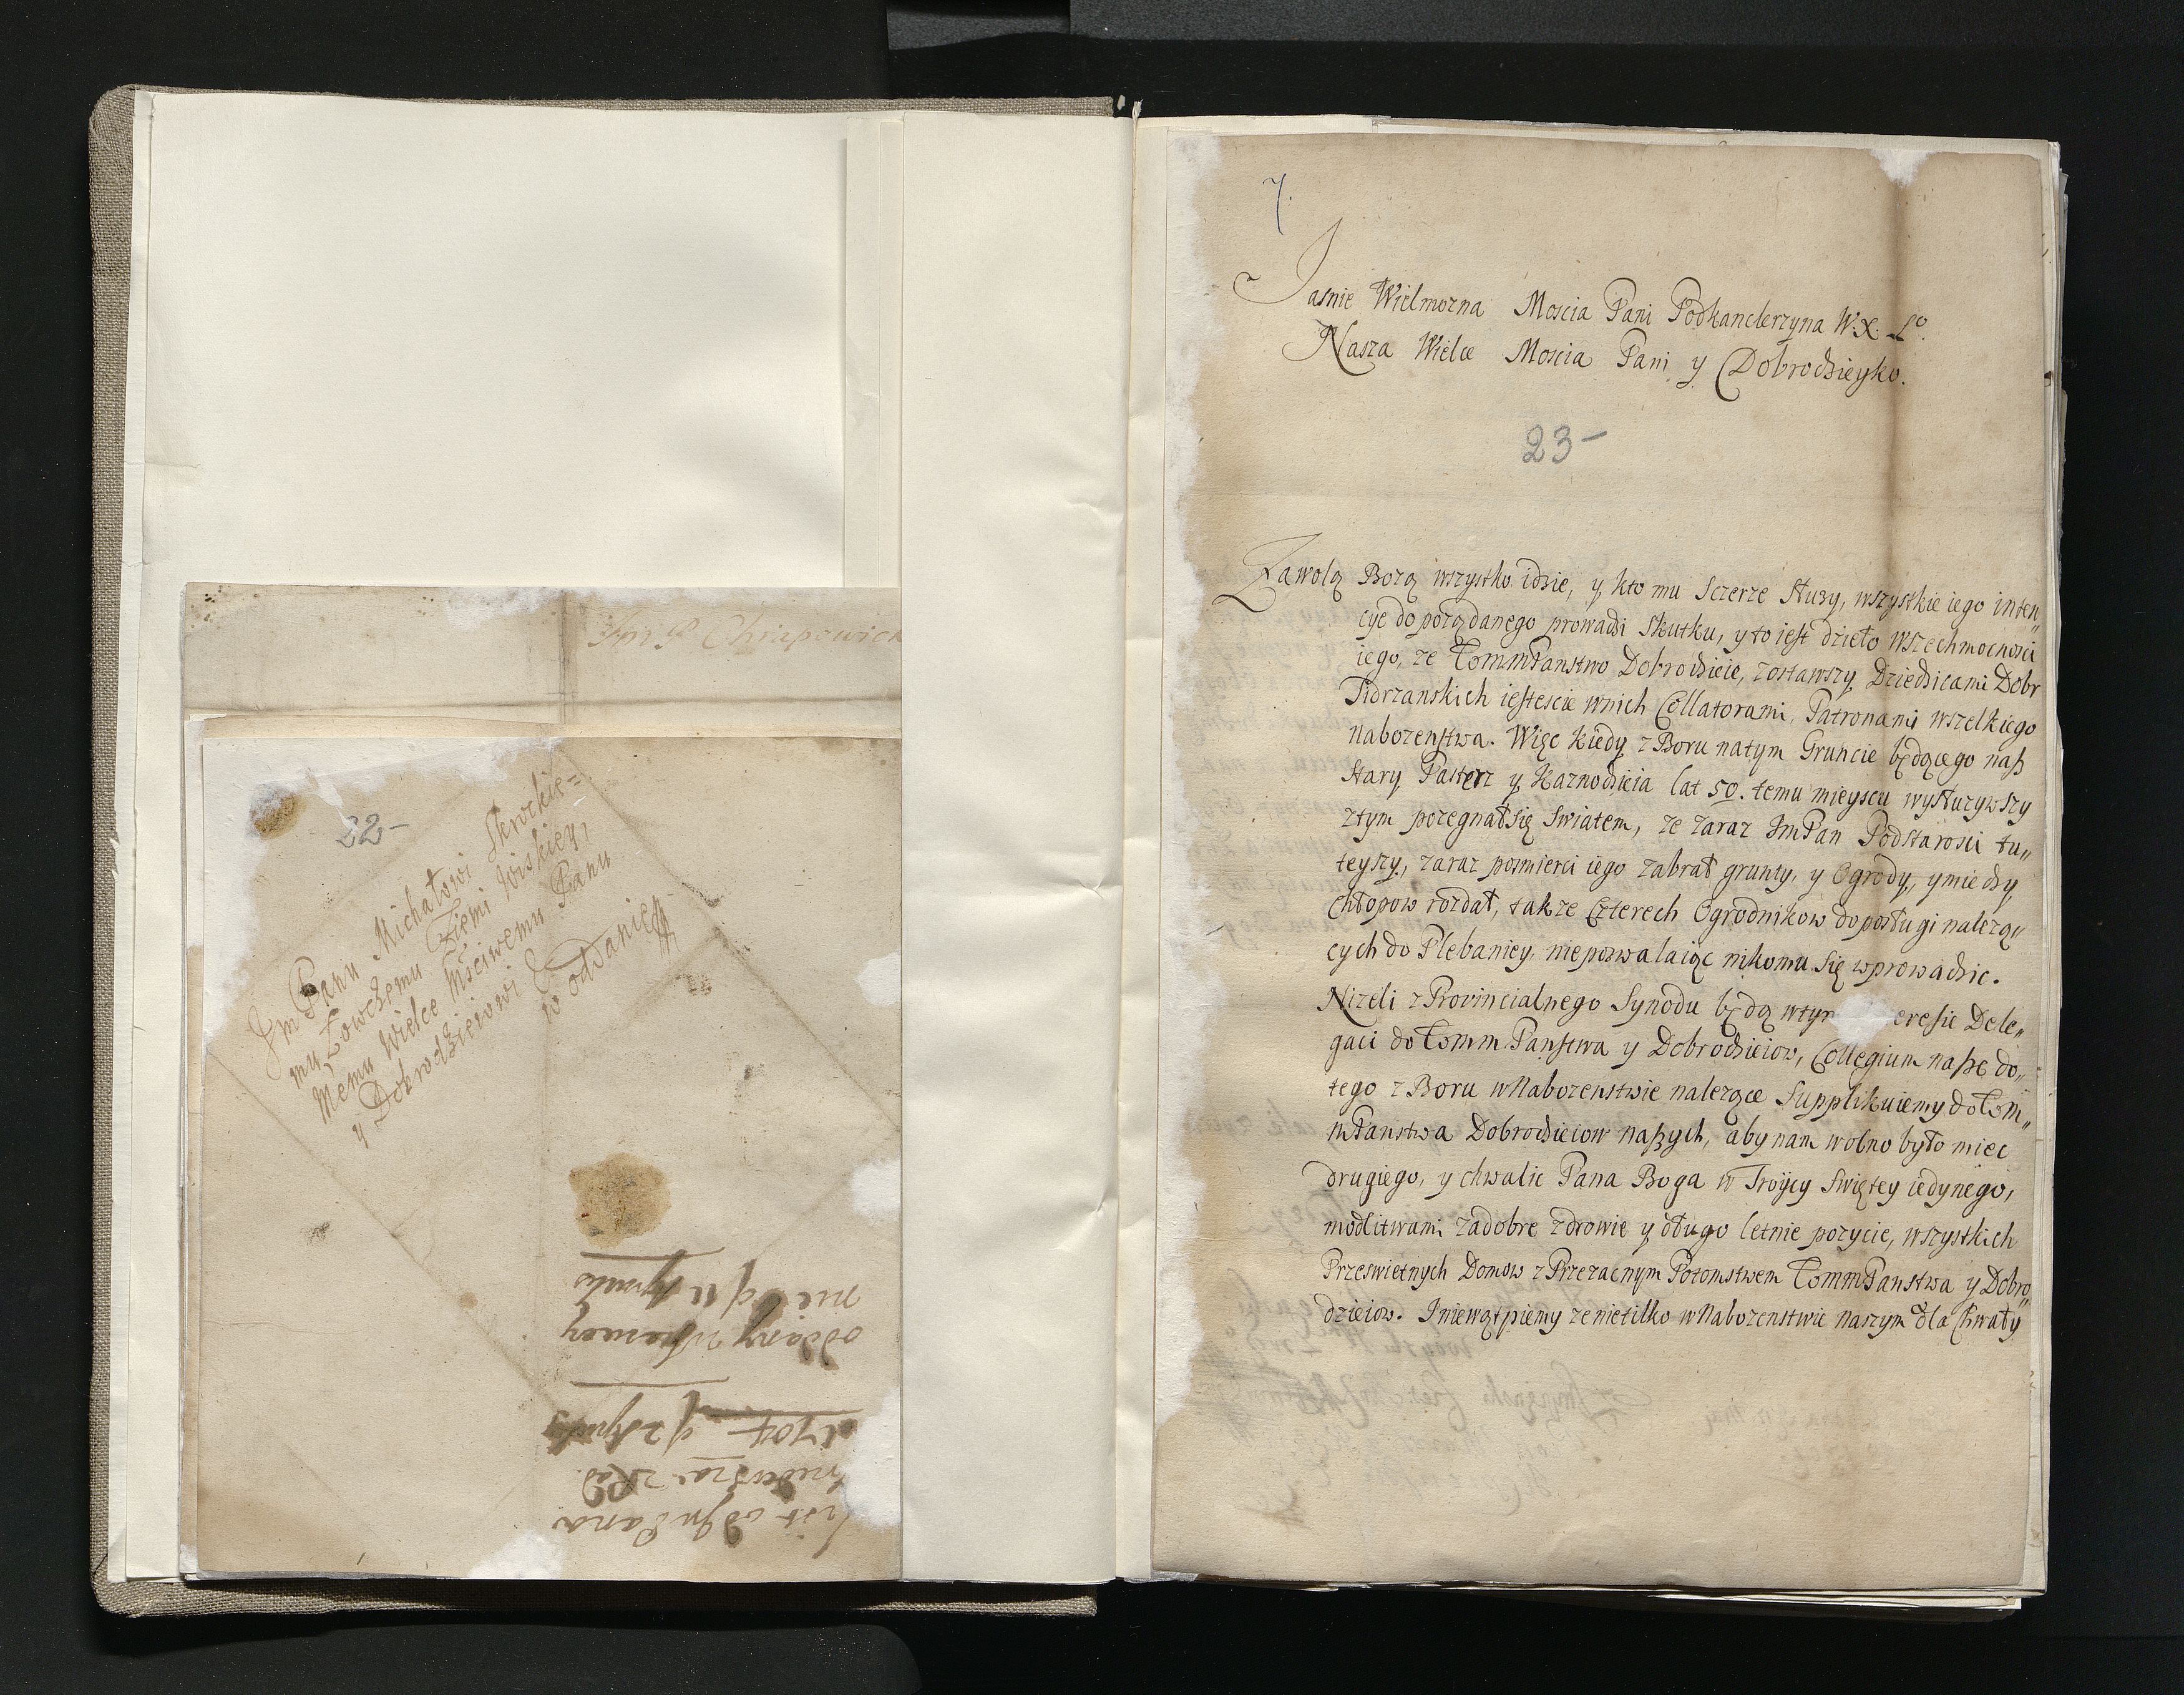 Im P Chrapowick
22-
Jm Panu Michałowi
mu Łowczemu Ziemi Wiskiey,
Memu Wielce Mściwemu Panu
y Dobrodzieiowi
w oddanie
List od Jm Pana
oddany
7.
Jasnie Wielmozna Moscia Pani Podkanclerzyna W.X. Lo.
Nasza Wielce Moscia Pani y Dobrodzieyko.
23-
Zawolą Bozą wszystko idzie, y kto mu Sczerze Słuzy, wszystkie iego inten„
cye do poządanego prowadzi Skutku, y to iest dzieło Wszechmocnosci
iego, ze Panstwo Dobrodzieie, zostawszy Dziedzicami Dobr
iestescie wnich Collatorami, Patronami wszelkiego
nabozenstwa. Więc kiedy z Boru natym Gruncie będącego naß
Stary Pasterz y Kaznodzieia lat 50. temu mieyscu wysłuzywszy
ztym pozegnał się Swiatem, ze zaraz Jm Pan Podstarosci tu„
teyszy, zaraz posmierci iego zabrał grunty, y Ogrody, ymiedzy
Chłopow rozdał, takze Czterech Ogrodnikow doposługi nalezą„
cych do Plebaniey, niepozwalaiąc nikomu się wprowadzic.
Nizeli z Provincialnego Synodu będą wtym eresie Dele„
gaci do Panstwa y Dobrodzieiow, Collegium naße do„
tego z Boru w Nabozenstwie nalezące Supplikuiemy do
Panstwa Dobrodzieiow naßych, aby nam wolno było miec
drugiego, y chwalic Pana Boga w Troycy Swiętey iedynego,
modlitwami zadobre zdrowie y długo letnie pozycie, wszystkich
Przeswietnych Domow z Przezacnym Potomstwem Panstwa y Dobro„
dzieiow. Jniewątpiemy ze nietilko w Nabozenstwie naszym dla Chwały